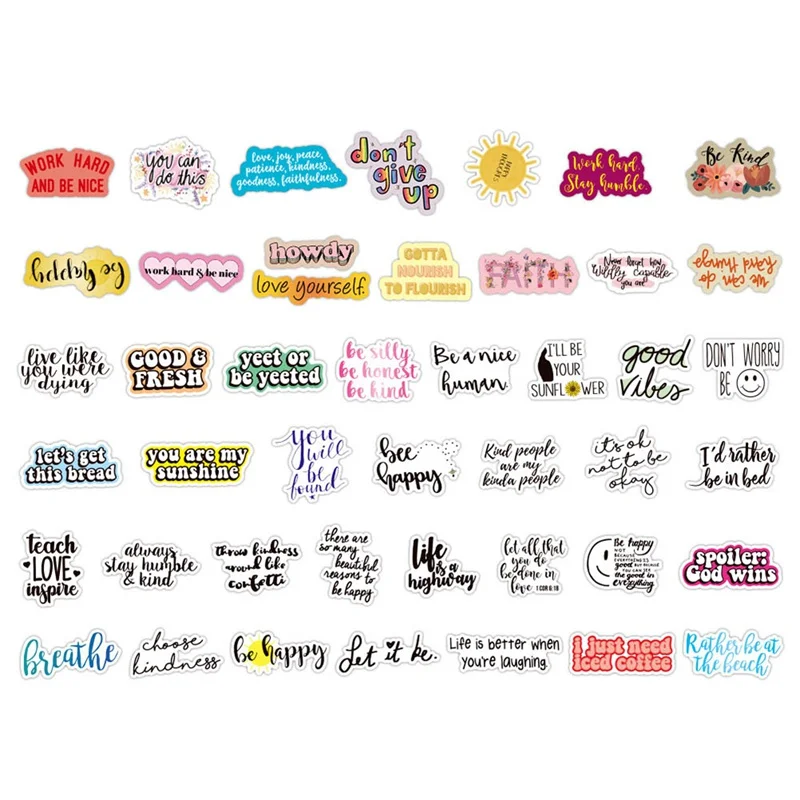 WORK HARD
AND BE NICE
You can
do this
love, joy, peace,
patience, kindness,
goodness, faithfulness.
don't
give
up
HAPPY
Work hard.
Stay humble.
Be Kind
be happy
work hard & be nice
howdy
love yourself.
GOTTA
NOURISH
TO FLOURISH
FAITH
Never forget how
Wildly capable
you are
we can do
hard things
live like
you were
dying
GOOD &
FRESH
yeet or
be yeeted
be silly
be honest
be kind
Be a nice
human.
I'LL BE
YOUR
SUNFLOWER
good
vibes
DON'T WORRY
BE
let's get
this bread
you are my
sunshine
you
will
be
found
bee
happy
Kind people
are my
kinda people
it's ok
not to be
okay
I'd rather
be in bed
teach
LOVE
inspire
always
stay humble
& kind
throw kindness
around like
confetti
there are
so many
beautiful
reasons to
be happy
life
is a
highway
let all that
you do
be done in
love 1 COR 16:18
Be happy
NOT
BECAUSE
EVERYTHING IS
good BUT BECAUSE
YOU CAN SEE
the good in
everything
spoiler:
God wins
breathe
choose
kindness
be happy
Let it be.
Life is better when
you're laughing.
i just need
iced coffee
Rather be at
the beach